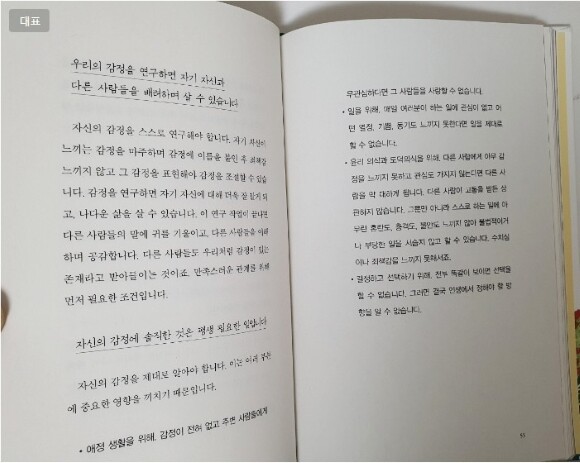 대표
우리의 감정을 연구하면 자기 자신과
다른 사람들을 배려하며 살 수 있습니다
자신의 감정을 스스로 연구해야 합니다. 자기 자신이
느끼는 감정을 마주하며 감정에 이름을 붙인 후 죄책감
느끼지 않고 그 감정을 표현해야 감정을 조절할 수 있습
니다. 감정을 연구하면 자기 자신에 대해 더욱 잘 알게 되
고, 나다운 삶을 살 수 있습니다. 이 연구 작업이 끝나면
다른 사람들의 말에 귀를 기울이고, 다른 사람들을 이해
하며 공감합니다. 다른 사람들도 우리처럼 감정이 있는
존재라고 받아들이는 것이죠. 만족스러운 관계를 위해
먼저 필요한 조건입니다.
자신의 감정에 솔직한 것은 평생 필요한 일입니다
자신의 감정을 제대로 알아야 합니다. 이는 여러 부분
에 중요한 영향을 끼치기 때문입니다.
• 애정 생활을 위해. 감정이 전혀 없고 주변 사람들에게
무관심하다면 그 사람들을 사랑할 수 없습니다.
• 일을 위해. 매일 여러분이 하는 일에 관심이 없고 어
떤 열정, 기쁨, 동기도 느끼지 못한다면 일을 제대로
할 수 없습니다.
• 윤리 의식과 도덕의식을 위해. 다른 사람에게 아무 감
정을 느끼지 못하고 관심도 가지지 않는다면 다른 사
람을 막 대하게 됩니다. 다른 사람이 고통을 받든 상
관하지 않습니다. 그뿐만 아니라 스스로 하는 일에 아
무런 혼란도, 충격도, 불만도 느끼지 않아 불법적이거
나 부당한 일을 서슴지 않고 할 수 있습니다. 수치심
이나 죄책감을 느끼지 못해서죠.
• 결정하고 선택하기 위해. 전부 똑같이 보이면 선택을
할 수 없습니다. 그러면 결국 인생에서 정해야 할 방
향을 알 수 없습니다.